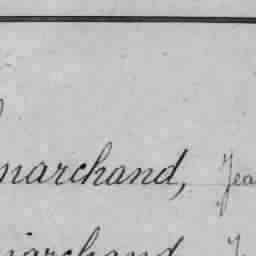 marchand, Jea
marchand